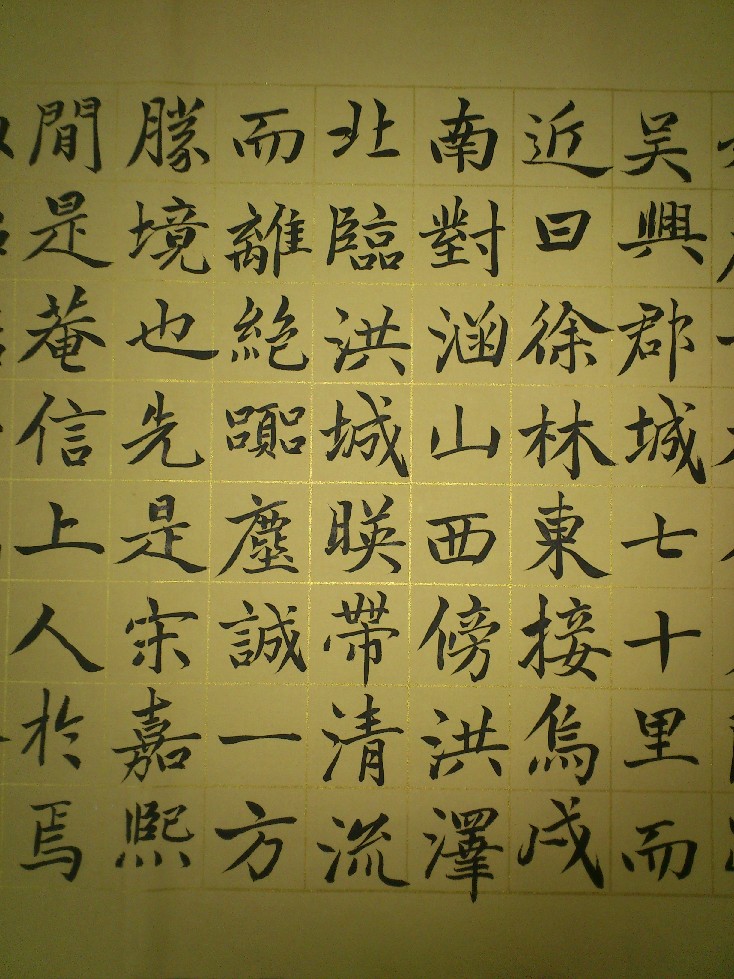 吳興郡城七十里而
近曰徐林東接烏戍
南對涵山西傍洪澤
北臨洪城暎帶清流
而離絕囂塵誠一方
勝境也先是宋嘉熙
間是菴信上人於焉